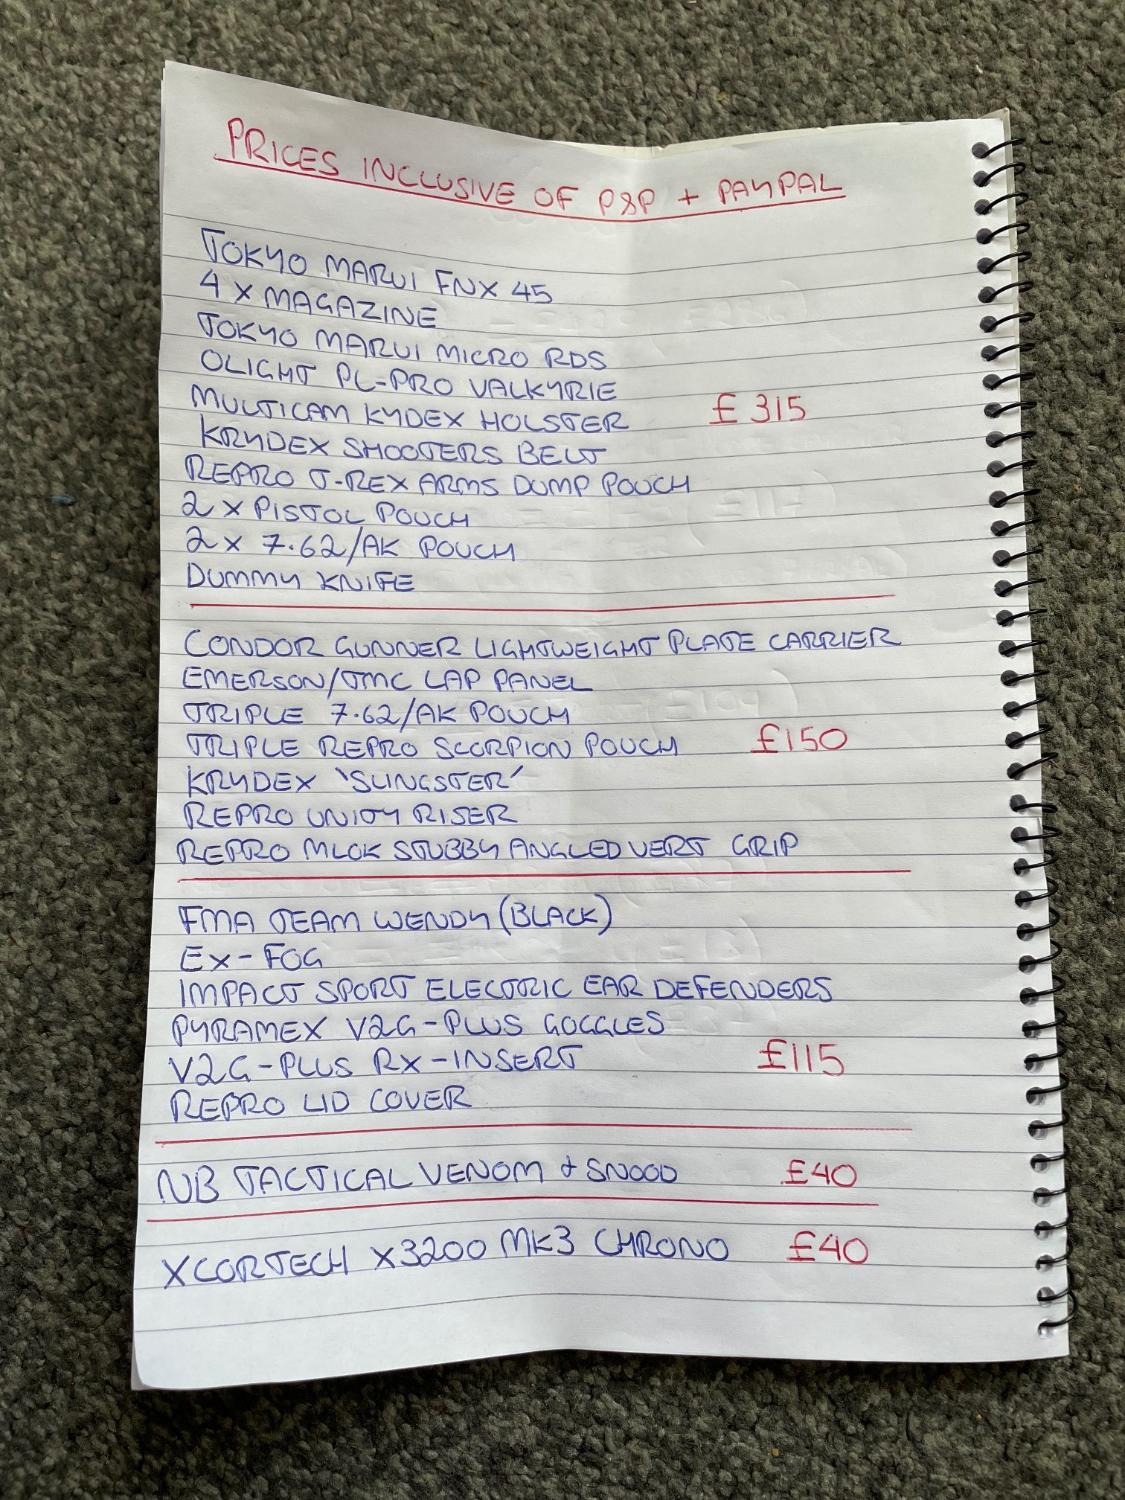 PRICES INCLUSIVE OF P&P + PAYPAL
TOKYO MARUI FNX 45
4 X MAGAZINE
TOKYO MARUI MICRO RDS
OLIGHT PL-PRO VALKYRIE
MULTICAM KYDEX HOLSTER £315
KRYDEX SHOOTERS BELT
REPRO T-REX ARMS DUMP POUCH
2 X PISTOL POUCH
2 X 7.62/AK POUCH
DUMMY KNIFE
CONDOR GUNNER LIGHTWEIGHT PLATE CARRIER
EMERSON/TMC LAP PANEL
TRIPLE 7.62/AK POUCH
TRIPLE REPRO SCORPION POUCH £150
KRYDEX 'SLINGSTER'
REPRO UNITY RISER
REPRO MLOK STUBBY ANGLED VERT GRIP
FMA TEAM WENDY (BLACK)
EX-FOG
IMPACT SPORT ELECTRIC EAR DEFENDERS
PYRAMEX V2G-PLUS GOGGLES
V2G-PLUS RX-INSERT £115
REPRO LID COVER
NB TACTICAL VENOM + SNOOD £40
XCORTECH X3200 MK3 CHRONO £40